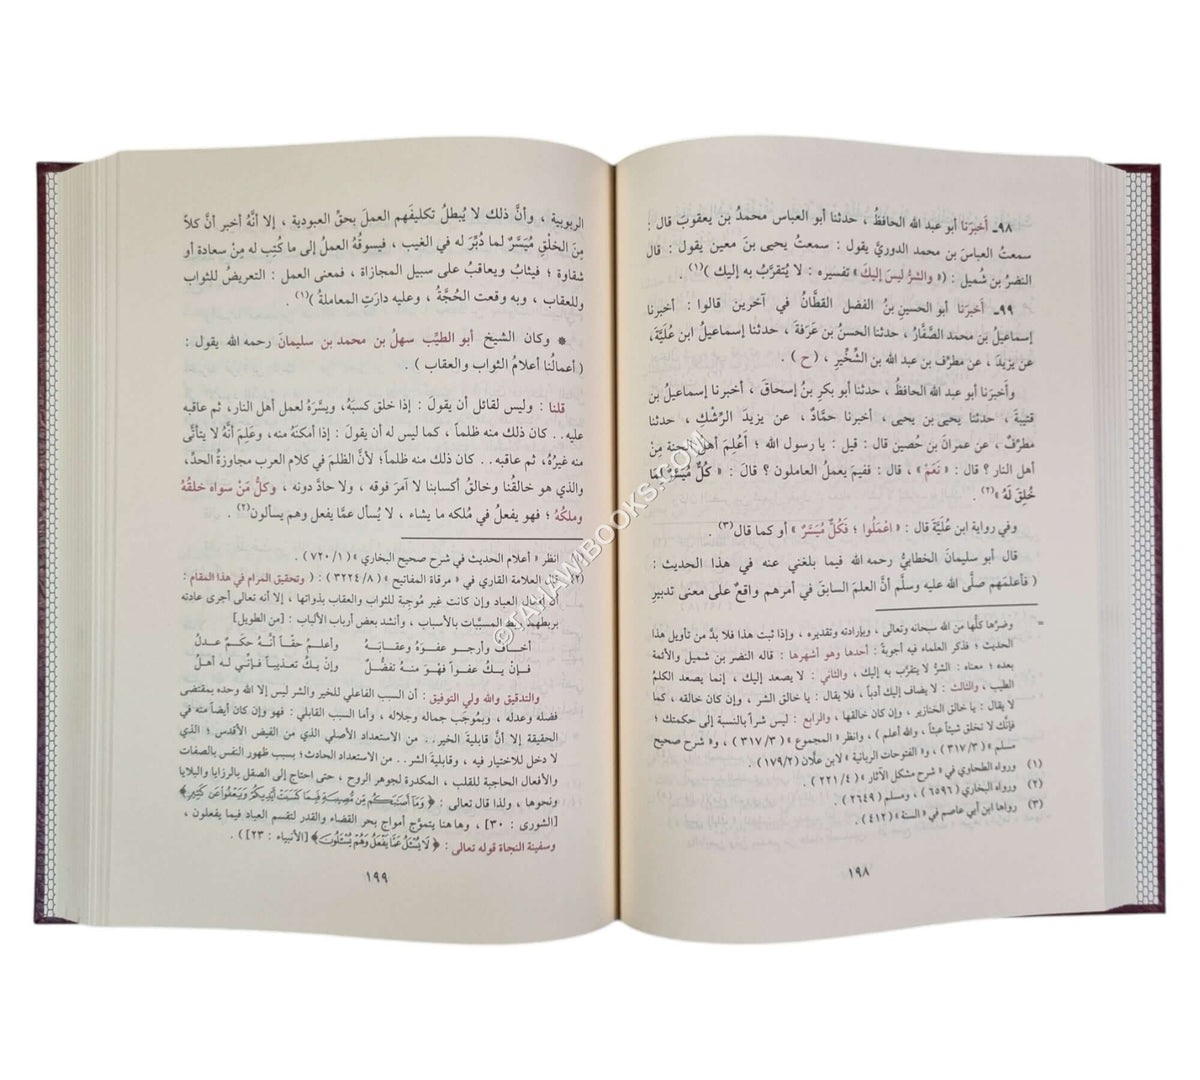 ٩٨ـ أخبرَنا أبو عبد الله الحافظُ ، حدثنا أبو العباس محمدُ بن يعقوبَ قال :
سمعتُ العباسَ بن محمد الدوريَّ يقول : سمعتُ يحيى بنَ معين يقول : قال
النضرُ بن شُميل : (« والشرُّ ليسَ إليكَ » تفسيره : لا يُتقرَّبُ به إليك )(١) .
٩٩ـ أخبرَنا أبو الحسين بنُ الفضل القطَّانُ في آخرين قالوا : أخبرنا
إسماعيلُ بن محمد الصَّفَّارُ ، حدثنا الحسنُ بن عَرفةَ ، حدثنا إسماعيلُ ابن عُليَّةَ،
عن يزيدَ ، عن مطرِّف بن عبد الله بن الشِّخِّيرِ ، ( ح ) .
وأخبرَنا أبو عبد الله الحافظُ ، حدثنا أبو بكرِ بنُ إسحاقَ ، أخبرنا إسماعيلُ بن
قتيبةَ ، حدثنا يحيى بن يحيى ، أخبرنا حمَّادٌ ، عن يزيدَ الرِّشْكِ ، حدثنا
مطرِّفٌ ، عن عمرانَ بن حُصين قال : قيل : يا رسول الله ؛ أعُلِمَ أهلُ الجنة مِنْ
أهل النار ؟ قال : « نَعَمْ » ، قال : ففيمَ يعملُ العاملون ؟ قالَ : « كُلٌّ مُيَسَّرٌ لِمَا
خُلِقَ لَهُ »(٢) .
وفي رواية ابن عُليَّةَ قال : « اعْمَلُوا ؛ فَكُلٌّ مُيَسَّرٌ » أو كما قال(٣) .
قال أبو سليمانَ الخطابيُّ رحمه الله فيما بلغني عنه في هذا الحديث :
( فأعلمَهم صلَّى الله عليه وسلَّم أنَّ العلمَ السابقَ في أمرهم واقعٌ على معنى تدبيرِ
= وضرَّها كلُّها من الله سبحانه وتعالى ، وبإرادته وتقديره ، وإذا ثبت هذا فلا بدَّ من تأويل هذا
الحديث ؛ فذكر العلماء فيه أجوبةً : أحدها وهو أشهرها : قاله النضر بن شميل والأئمة
بعده ؛ معناه : الشرُّ لا يتقرَّب به إليك ، والثاني : لا يصعد إليك ، إنما يصعد الكلمُ
الطيب ، والثالث : لا يضاف إليك أدباً ، فلا يقال : يا خالق الشر ، وإن كان خالقه ، كما
لا يقال : يا خالق الخنازير ، وإن كان خالقها ، والرابع : ليس شراً بالنسبة إلى حكمتك ؛
فإنَّك لا تخلق شيئاً عبثاً ، والله أعلم ) ، وانظر « المجموع » ( ٣١٧/٣ ) ، و« شرح صحيح
مسلم » ( ٣١٧/٣ ) ، و« الفتوحات الربانية » لابن علَّان (١٧٩/٢) .
(١) ورواه الطحاوي في « شرح مشكل الآثار » ( ٢٢١/٤ ) .
(٢) ورواه البخاري ( ٦٥٩٦ ) ، ومسلم ( ٢٦٤٩ ) .
(٣) رواها ابن أبي عاصم في « السنة » ( ٤١٢ ) .
١٩٨
الربوبية ، وأنَّ ذلك لا يُبطلُ تكليفَهم العملَ بحقِّ العبودية ، إلا أنَّهُ أخبر أنَّ كلاًّ
مِنَ الخلْقِ مُيَسَّرٌ لما دُبِّرَ له في الغيب ، فيسوقُهُ العملُ إلى ما كُتِبَ له مِنْ سعادة أو
شقاوة ؛ فيثابُ ويعاقبُ على سبيل المجازاة ، فمعنى العمل : التعريضُ للثواب
وللعقاب ، وبه وقعت الحُجَّةُ ، وعليه دارَتِ المعاملةُ )(١) .
* وكان الشيخ أبو الطيِّب سهلُ بن محمد بن سليمانَ رحمه الله يقول :
( أعمالُنا أعلامُ الثواب والعقاب ) .
قلنا : وليس لقائل أن يقولَ : إذا خلق كسبَهُ، ويسَّرَهُ لعمل أهل النار، ثم عاقبه
عليه . . كان ذلك منه ظلماً ، كما ليس له أن يقولَ : إذا أمكنَهُ منه ، وعَلِمَ أنَّهُ لا يتأتَّى
منه غيرُهُ، ثم عاقبه . . كان ذلك منه ظلماً؛ لأنَّ الظلمَ في كلام العرب مجاوزةُ الحدِّ،
والذي هو خالقُنا وخالقُ أكسابنا لا آمرَ فوقه ، ولا حادَّ دونه ، وكلُّ مَنْ سواه خلقُهُ
وملكُهُ ؛ فهو يفعلُ في مُلكه ما يشاء ، لا يُسأل عمَّا يفعل وهم يسألون(٢) .
(١) انظر « أعلام الحديث في شرح صحيح البخاري » ( ٧٢٠/١ ) .
(٢) قال العلامة القاري في « مرقاة المفاتيح » ( ٣٢٢٤/٨ ) : ( وتحقيق المَرام في هذا المقام :
أن أعمال العباد وإن كانت غير مُوجِبة للثواب والعقاب بذواتها ، إلا أنه تعالى أجرى عادته
بربطهما ربط المسبَّبات بالأسباب ، وأنشد بعض أرباب الألباب : [من الطويل]
أخـاف وأرجـو عفـوَهُ وعقـابَـهُ وأعلـمُ حقـاً أنَّـهُ حكَـمٌ عـدلُ
فـإنْ يـكُ عفـواً فهْـوَ منـهُ تفضُّلٌ وإنْ يـكُ تعـذيبـاً فـإنِّـي لـه أهـلُ
والتدقيق والله ولي التوفيق : أن السبب الفاعلي للخير والشر ليس إلا الله وحده بمقتضى
فضله وعدله ، وبمُوجَب جماله وجلاله ، وأما السبب القابلي : فهو وإن كان أيضاً منه في
الحقيقة إلا أنَّ قابلية الخير.. من الاستعداد الأصلي الذي من الفيض الأقدس ؛ الذي
لا دخل للاختيار فيه ، وقابلية الشر.. من الاستعداد الحادث؛ بسبب ظهور النفس بالصفات
والأفعال الحاجبة للقلب ، المكدرة لجوهر الروح ، حتى احتاج إلى الصقل بالرزايا والبلايا
ونحوها ، ولذا قال تعالى : ﴿ وَمَا أَصَابَكُم مِّن مُّصِيبَةٍ فَبِمَا كَسَبَتْ أَيْدِيكُمْ وَيَعْفُوا عَن كَثِيرٍ ﴾
[الشورى : ٣٠] ، وها هنا يتموَّج أمواج بحر القضاء والقدر لتقسم العباد فيما يفعلون ،
وسفينة النجاة قوله تعالى : ﴿ لَا يُسْـَٔلُ عَمَّا يَفْعَلُ وَهُمْ يُسْـَٔلُونَ﴾ [الأنبياء : ٢٣] ) .
١٩٩
©TAHAWIBOOKS.COM